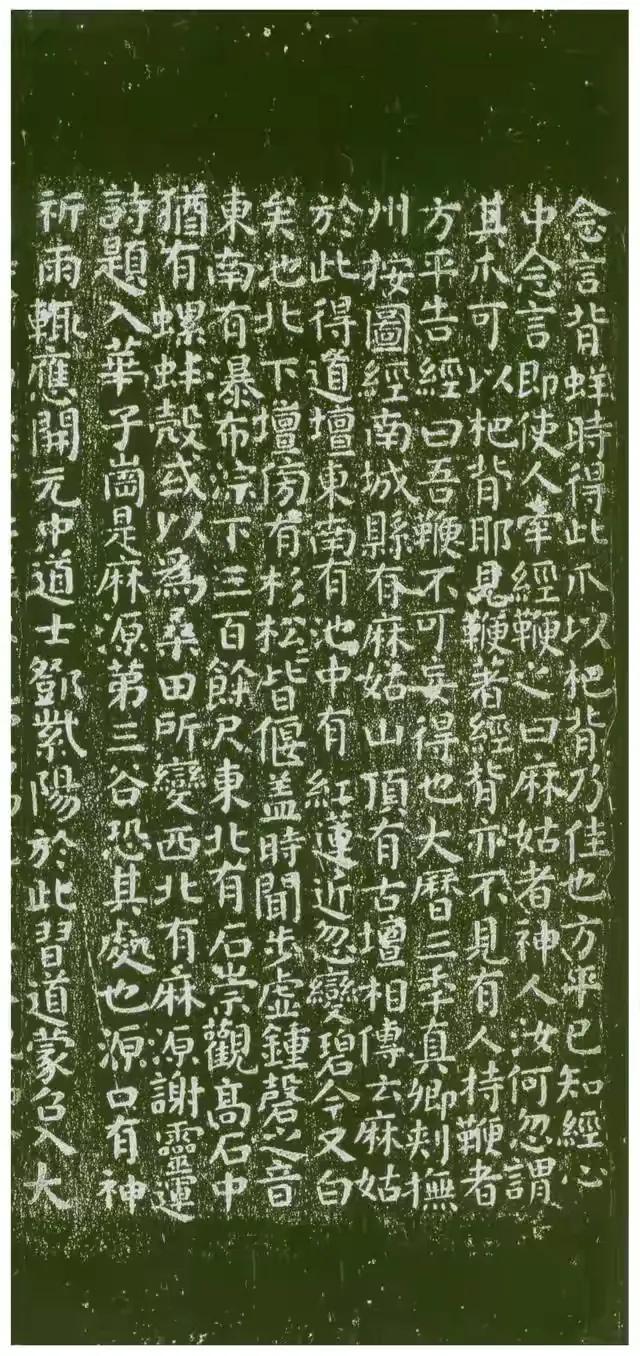 念言背蛘時得此爪以杷背乃佳也方平已知經心
中念言即使人牽經鞭之曰麻姑者神人汝何忽謂
其爪可以杷背耶見鞭著經背亦不見有人持鞭者
方平告經曰吾鞭不可妄得也大曆三年真卿刺撫
州按圖經南城縣有麻姑山頂有古壇相傳云麻姑
於此得道壇東南有池中有紅蓮近忽變碧今又白
矣池北下壇傍有杉松皆偃盖時聞步虛鍾磬之音
東南有瀑布淙下三百餘尺東北有石崇觀高石中
猶有螺蚌殼或以為桑田所變西北有麻源謝靈運
詩題入華子崗是麻源第三谷恐其處也源口有神
祈雨輒應開元中道士鄧紫陽於此習道蒙召入大